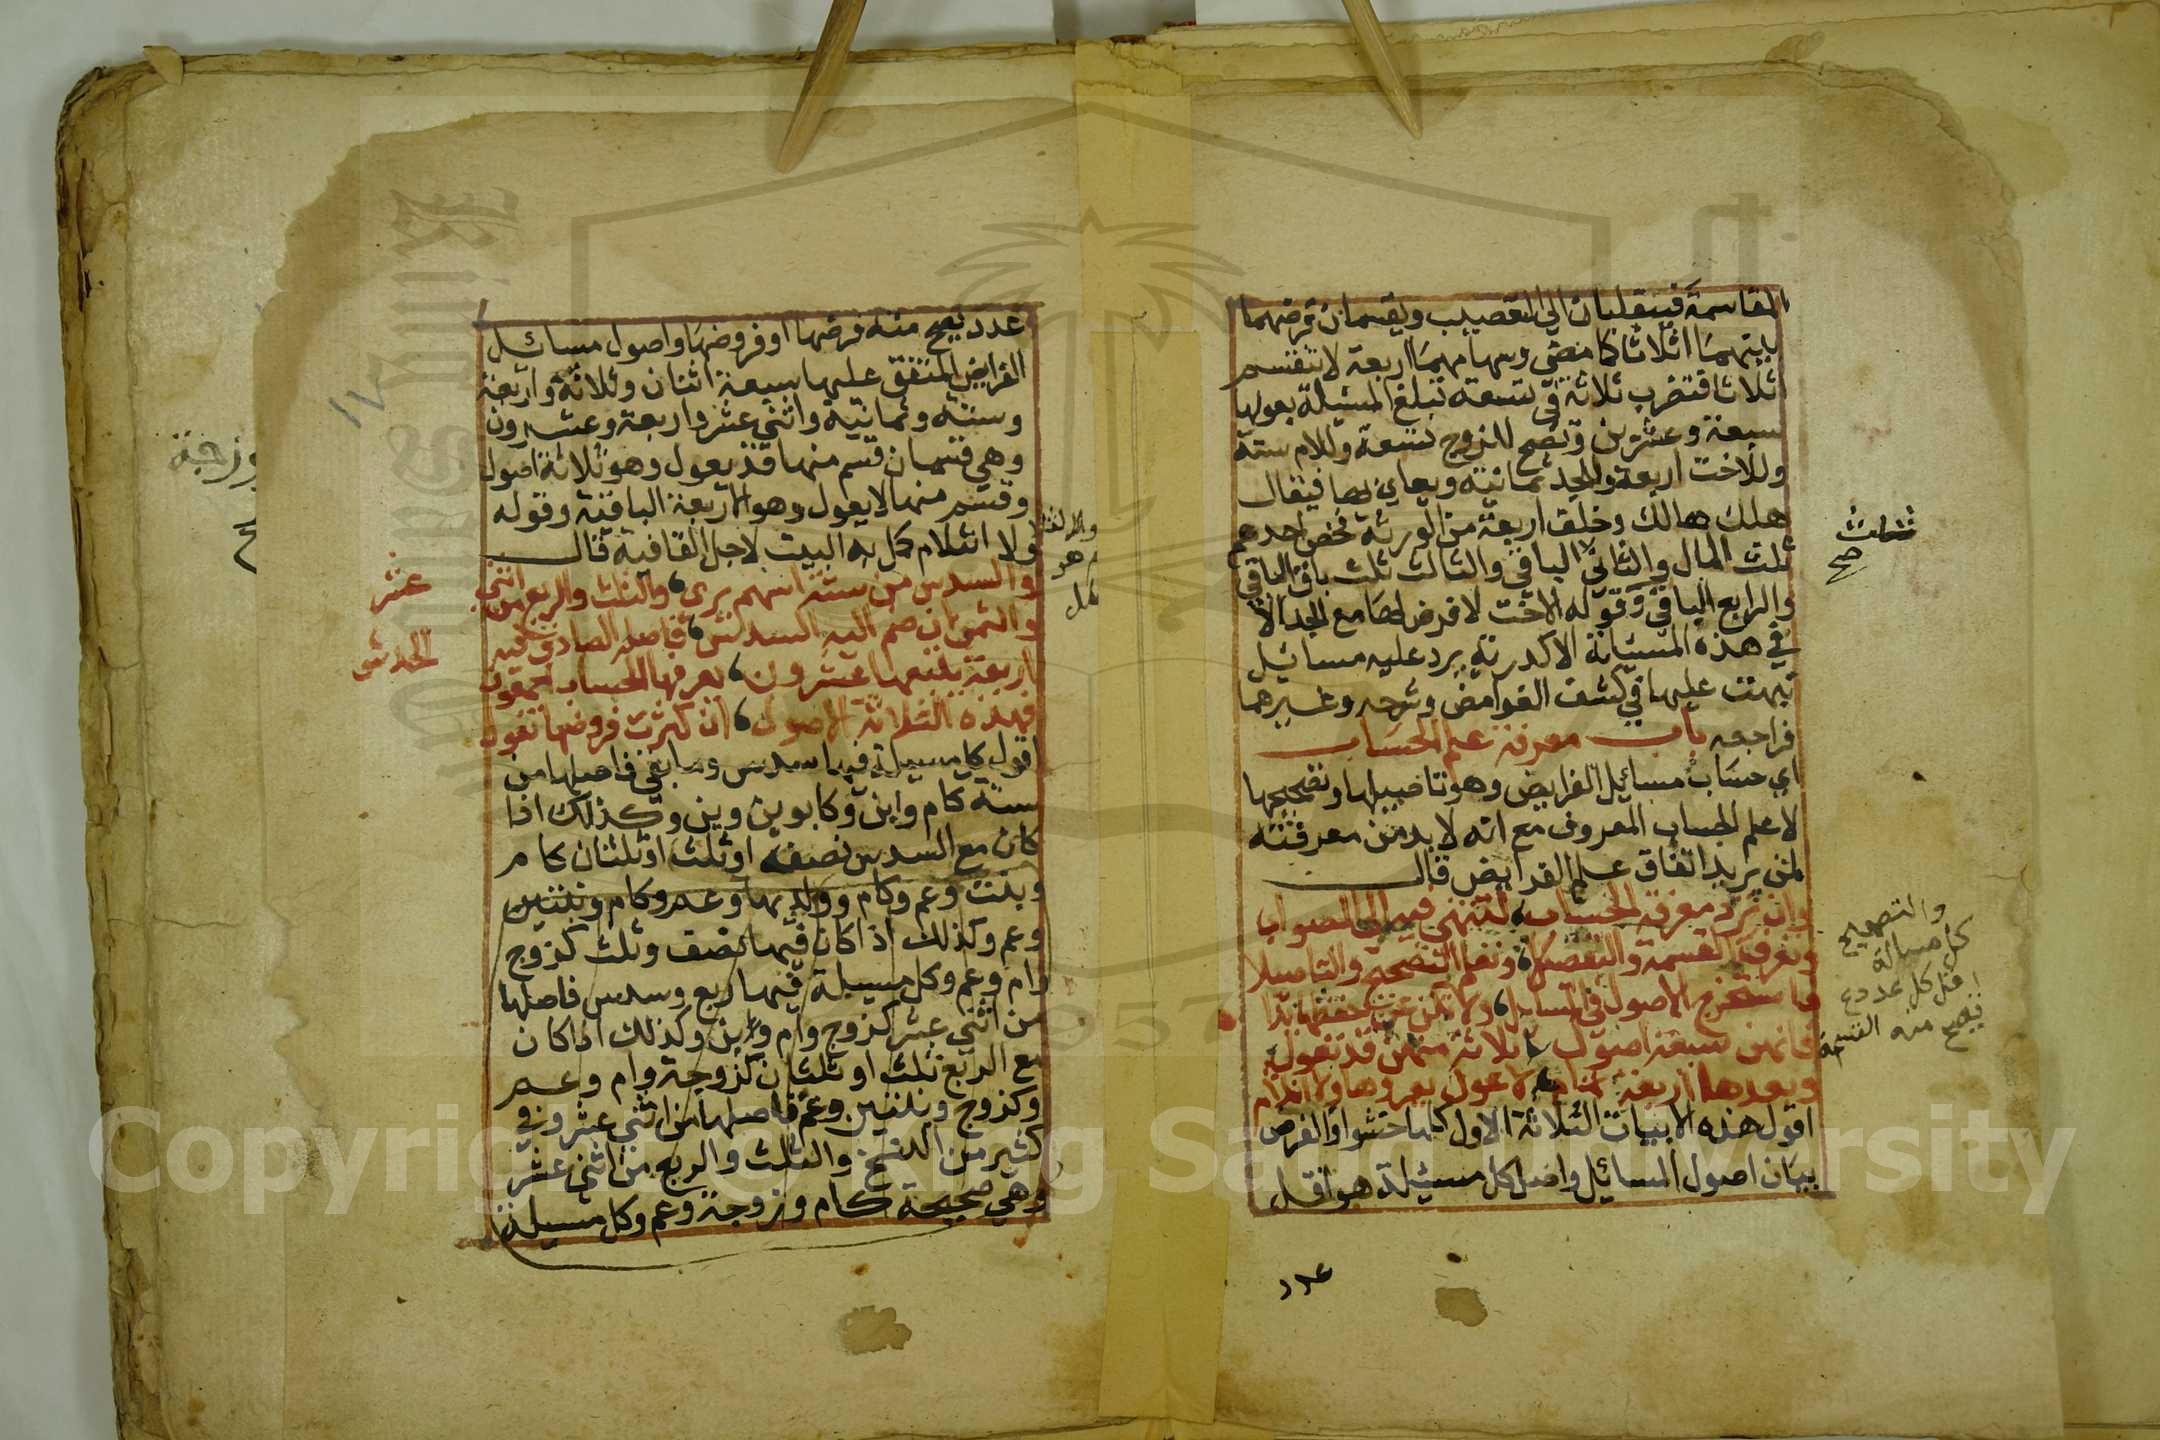 المقاسمة فينقلبان الى التعصيب ويقسمان فرضهما
بينهما اثلاثا كما مضى وسهامهما اربعة لا تنقسم
اثلاثا فتضرب ثلاثة في تسعة تبلغ المسئلة بعولها
سبعة وعشرين وتصح للزوج تسعة وللام ستة
وللاخت اربعة وللجد ثمانية ويعايى بها فيقال
هلك هالك وخلف اربعة من الورثة فخص احدهم
ثلث المال والثاني الباقي والثالث ثلث باقي الباقي
والرابع الباقي وقوله الاخت لا فرض لها مع الجد الا
في هذه المسئلة الاكدرية يرد عليه مسائل
نبهت عليها في كشف الغوامض وشرحه وغيرهما
فراجعه باب معرفة علم الحساب
اي حساب مسائل الفرايض وهو تاصيلها وتصحيحها
لا علم الحساب المعروف مع انه لا بد من معرفته
لمن يريد اتقان علم الفرايض قال
وان ترد معرفة الحساب لتنتهي فيه الى الصواب
وتعرف القسمة والتفصيلا وتعلم التصحيح والتاصيلا
فاستخرج الاصول في المسايل ولا تكن عن حفظها بذا
فانهن سبعة اصول ثلاثة منهن قد تعول
وبعدها اربعة تمام لا عول يعروها ولا انثلام
اقول هذه الابيات الثلاثة الاول كلها حشو والغرض
بيان اصول المسائل واصل كل مسئلة هو اقل
عدد
ثلث
صح
والتصحيح
كل مسالة
اقل كل عدد
يصح منه القسمة
عدد يصح منه فرضها او فروضها واصول مسائل
الفرايض المتفق عليها سبعة اثنان وثلاثة واربعة
وستة وثمانية واثني عشر واربعة وعشرون
وهي قسمان قسم منها قد يعول وهو ثلاثة اصول
وقسم منها لا يعول وهو الاربعة الباقية وقوله
ولا انثلام كمل به البيت لاجل القافية قال
والسدس من ستة اسهم يرى والثلث والربع من اثني
عشر
والثمن ان ضم اليه السدس فاصله الصادق فيه
الحدس
اربعة يتبعها عشرون يعرفها الحساب اجمعون
فهذه الثلاثة الاصول ان كثرت فروضها تعول
اقول كل مسيلة فيها سدس وما بقي فاصلها من
ستة كام وابن وكابوين وبن وكذلك اذا
كان مع السدس نصف او ثلث او ثلثان كام
وبنت وعم وكام وولديها وعم وكام وبنتين
وعم وكذلك اذا كان فيها نصف وثلث كزوج
وام وعم وكل مسيلة فيها ربع وسدس فاصلها
من اثني عشر كزوج وام وابن وكذلك اذا كان
مع الربع ثلث او ثلثان كزوجة وام وعم
وكزوج وبنتين وعم فاصلها من اثني عشر وفي
كثير من النسخ والثلث والربع من اثني عشر
وهي صحيحة كام وزوجة وعم وكل مسيلة
وزوجة
Copyright © King Saud University
King Saud
1957